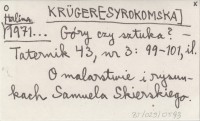 Halina KRÜGER[-SYROKOMSKA]
1971... Góry czy sztuka? –
Taternik 43, nr 3: 99-101, il.
O malarstwie i rysun-
kach Samuela Skierskiego.